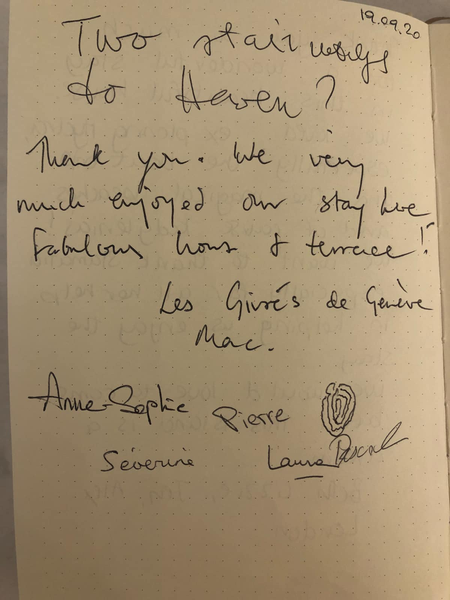 19.09.20
Two stairways
to Haven?
Thank you. We very
much enjoyed our stay here
Fabulous house & terrace!
Les Givrés de Genève
Mac.
Anne-Sophie Pierre
Séverine Laura Pascal